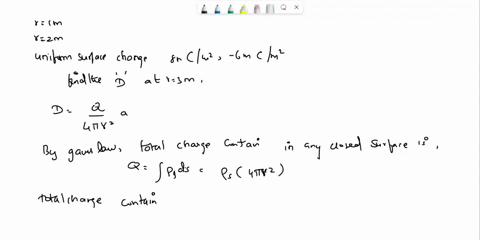 r=1m
r=2m
uniform surface charge 8n C/m², -6m C/m²
find the 'D' at r=3m.
D = Q / 4πr² a
By gauss law, total charge contain in any closed surface is,
Q = ∫ ρs ds = ρs (4πr²)
total charge contain